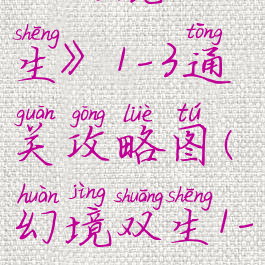 shēng tōng
生》1-3通
guān gōng lüè tú
关攻略图(
huàn jìng shuāng shēng
幻境双生1-